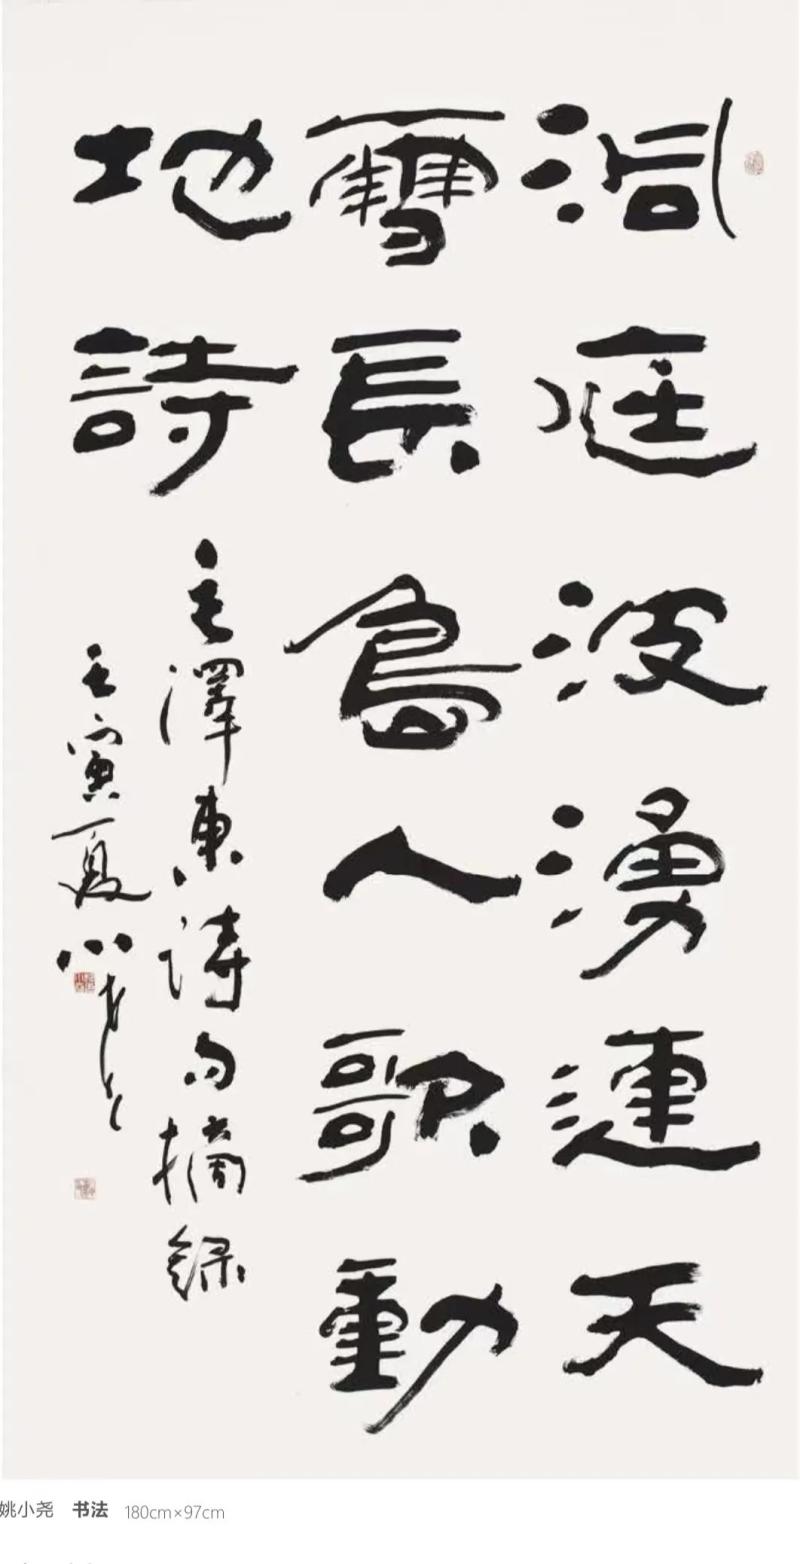 洞庭波湧連天
雪長島人歌動
地詩
毛澤東詩句摘録
壬寅夏小尧
姚小尧 书法 180cm×97cm